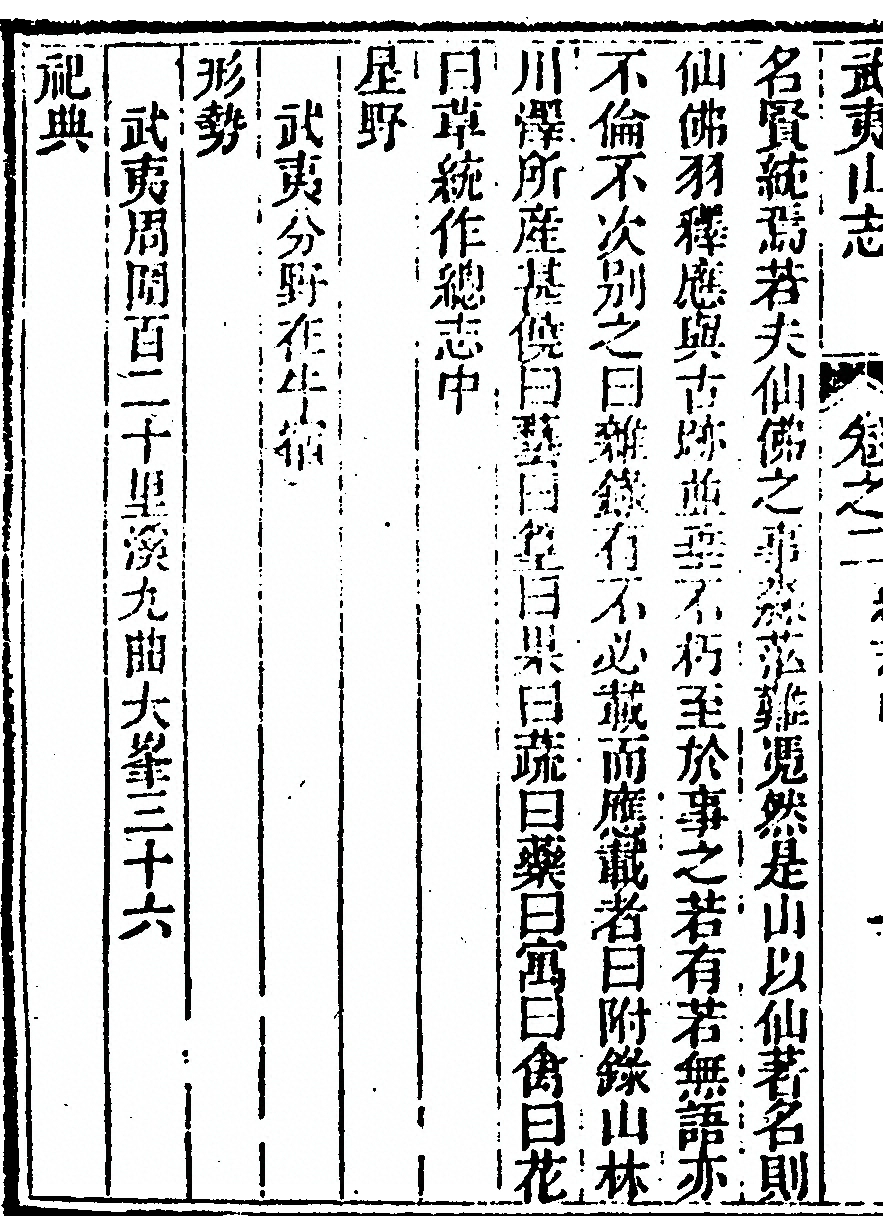 武夷山志 卷之二
名賢統焉若夫仙佛之事淼茫難憑然是山以仙著名則
仙佛羽釋應與古跡並垂不朽至於事之若有若無語亦
不倫不次别之曰雜錄有不必載而應載者曰附錄山林
川澤所産甚饒曰藝曰曰果曰蔬曰藥曰寓曰禽曰花
曰草統作總志中
星野
武夷分野在牛宿
形勢
武夷周圍百二十里溪九曲大峯三十六
祀典